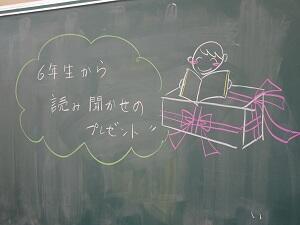 6年生から
読み聞かせの
プレゼント